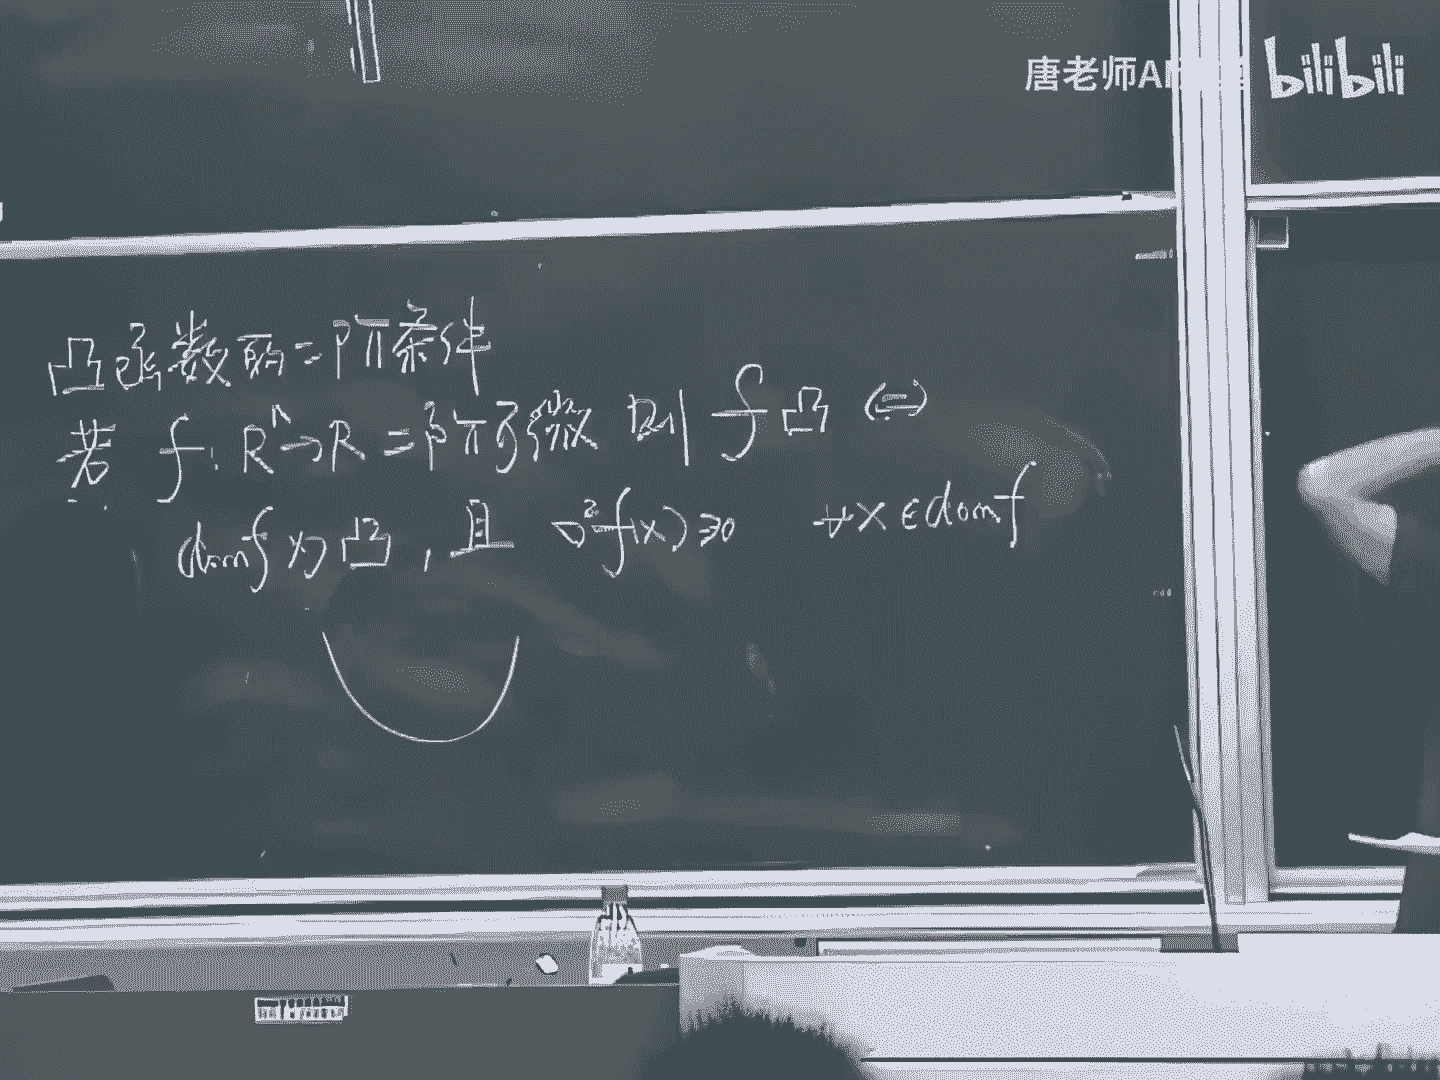 唐老师AI bilibili
凸函数的二阶条件
若 f: Rⁿ→R 二阶可微 则 f 凸 ⇔
domf 为凸，且 ∇²f(x) ≽0 ∀x∈domf